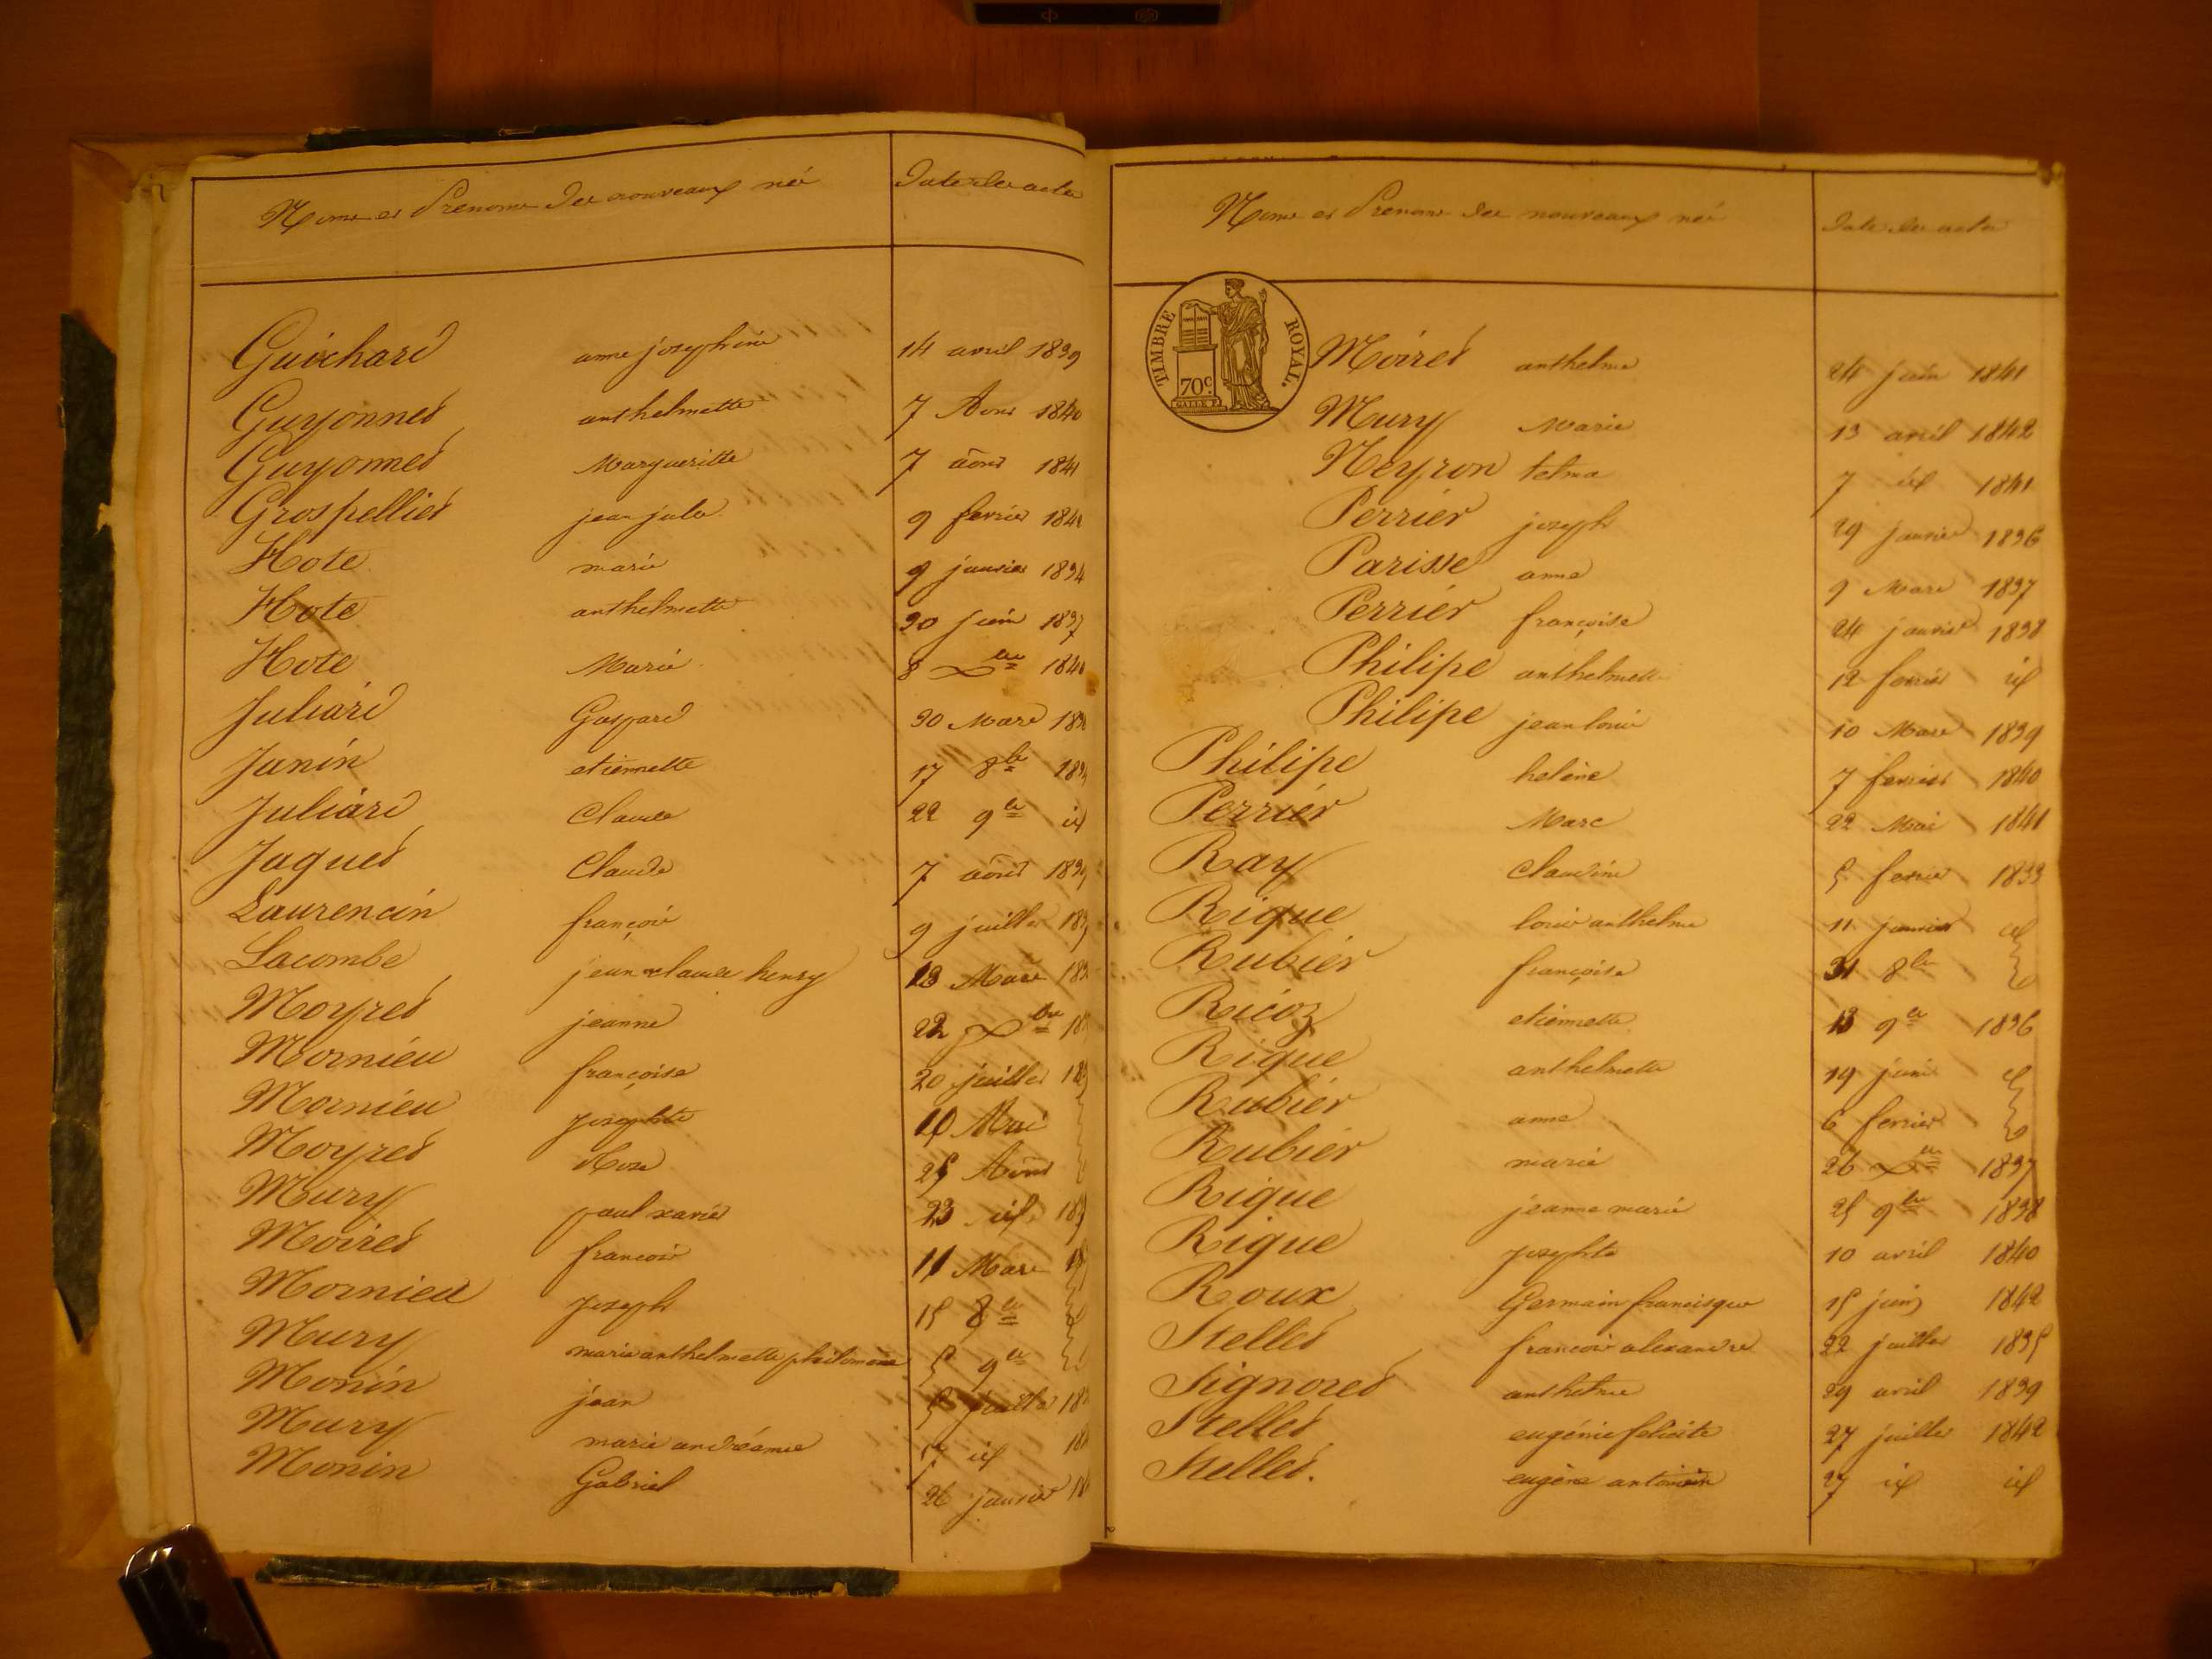 Noms et Prenoms des nouveaux nés Date des actes
Guichard anne josephine 14 avril 1839
Guyonnet anthelmette 7 Aout 1840
Guyonnet Margueritte 7 aout 1841
Grospellier jean jules 9 fevrier 1842
Hote marie 9 janvier 1834
Hote anthelmette 30 juin 1837
Hote Marie 8 Xbre 1840
Juliard Gaspard 30 Mars
Janin etiennette 17 8bre
Juliard Claude 22 9bre id
Jaquet Claude 7 aout 1839
Laurencin françois 9 juillet
Lacombe jean claude henry 13 Mars
Moyret jeanne 22 Xbre
Mornieu françoise 20 juillet
Mornieu josephte 10 Mai
Moyret Rose 25 Aout
Mury paul xavier 23 id
Moiret françois 11 Mars
Mornieu joseph 15 8bre
Mury marie anthelmette philomene 5 9bre
Monin jean 5 juillet
Mury marie andréanne 17 id
Monin Gabriel 26 janvier
Noms et Prenoms des nouveaux nés Date des actes
TIMBRE ROYAL.
70c.
Moiret anthelme 24 juin 1841
Mury Marie 13 avril 1842
Neyron telma 7 id 1841
Perrier joseph 29 janvier 1836
Parisse anne 9 Mars 1837
Perrier françoise 24 janvier 1838
Philipe anthelmette 12 fevrier id
Philipe jean louis 10 Mars 1839
Philipe helène 7 fevrier 1840
Perrier Marc 22 Mai 1841
Ray claudine 5 fevrier 1833
Rique louis anthelme 11 janvier id
Rubier françoise 31 8bre
Ricoz etiennette 13 9bre 1836
Rique anthelmette 19 juin
Rubier anne 6 fevrier
Rubier marie 26 Xbre 1837
Rique jeanne marie 25 9bre 1838
Rique josephte 10 avril 1840
Roux Germain francisque 15 juin 1842
Stellet françois alexandre 22 juillet 1835
Signoret anthelme 29 avril 1839
Stellet eugénie felicite 27 juillet 1842
Stellet. eugène antonin 27 id id